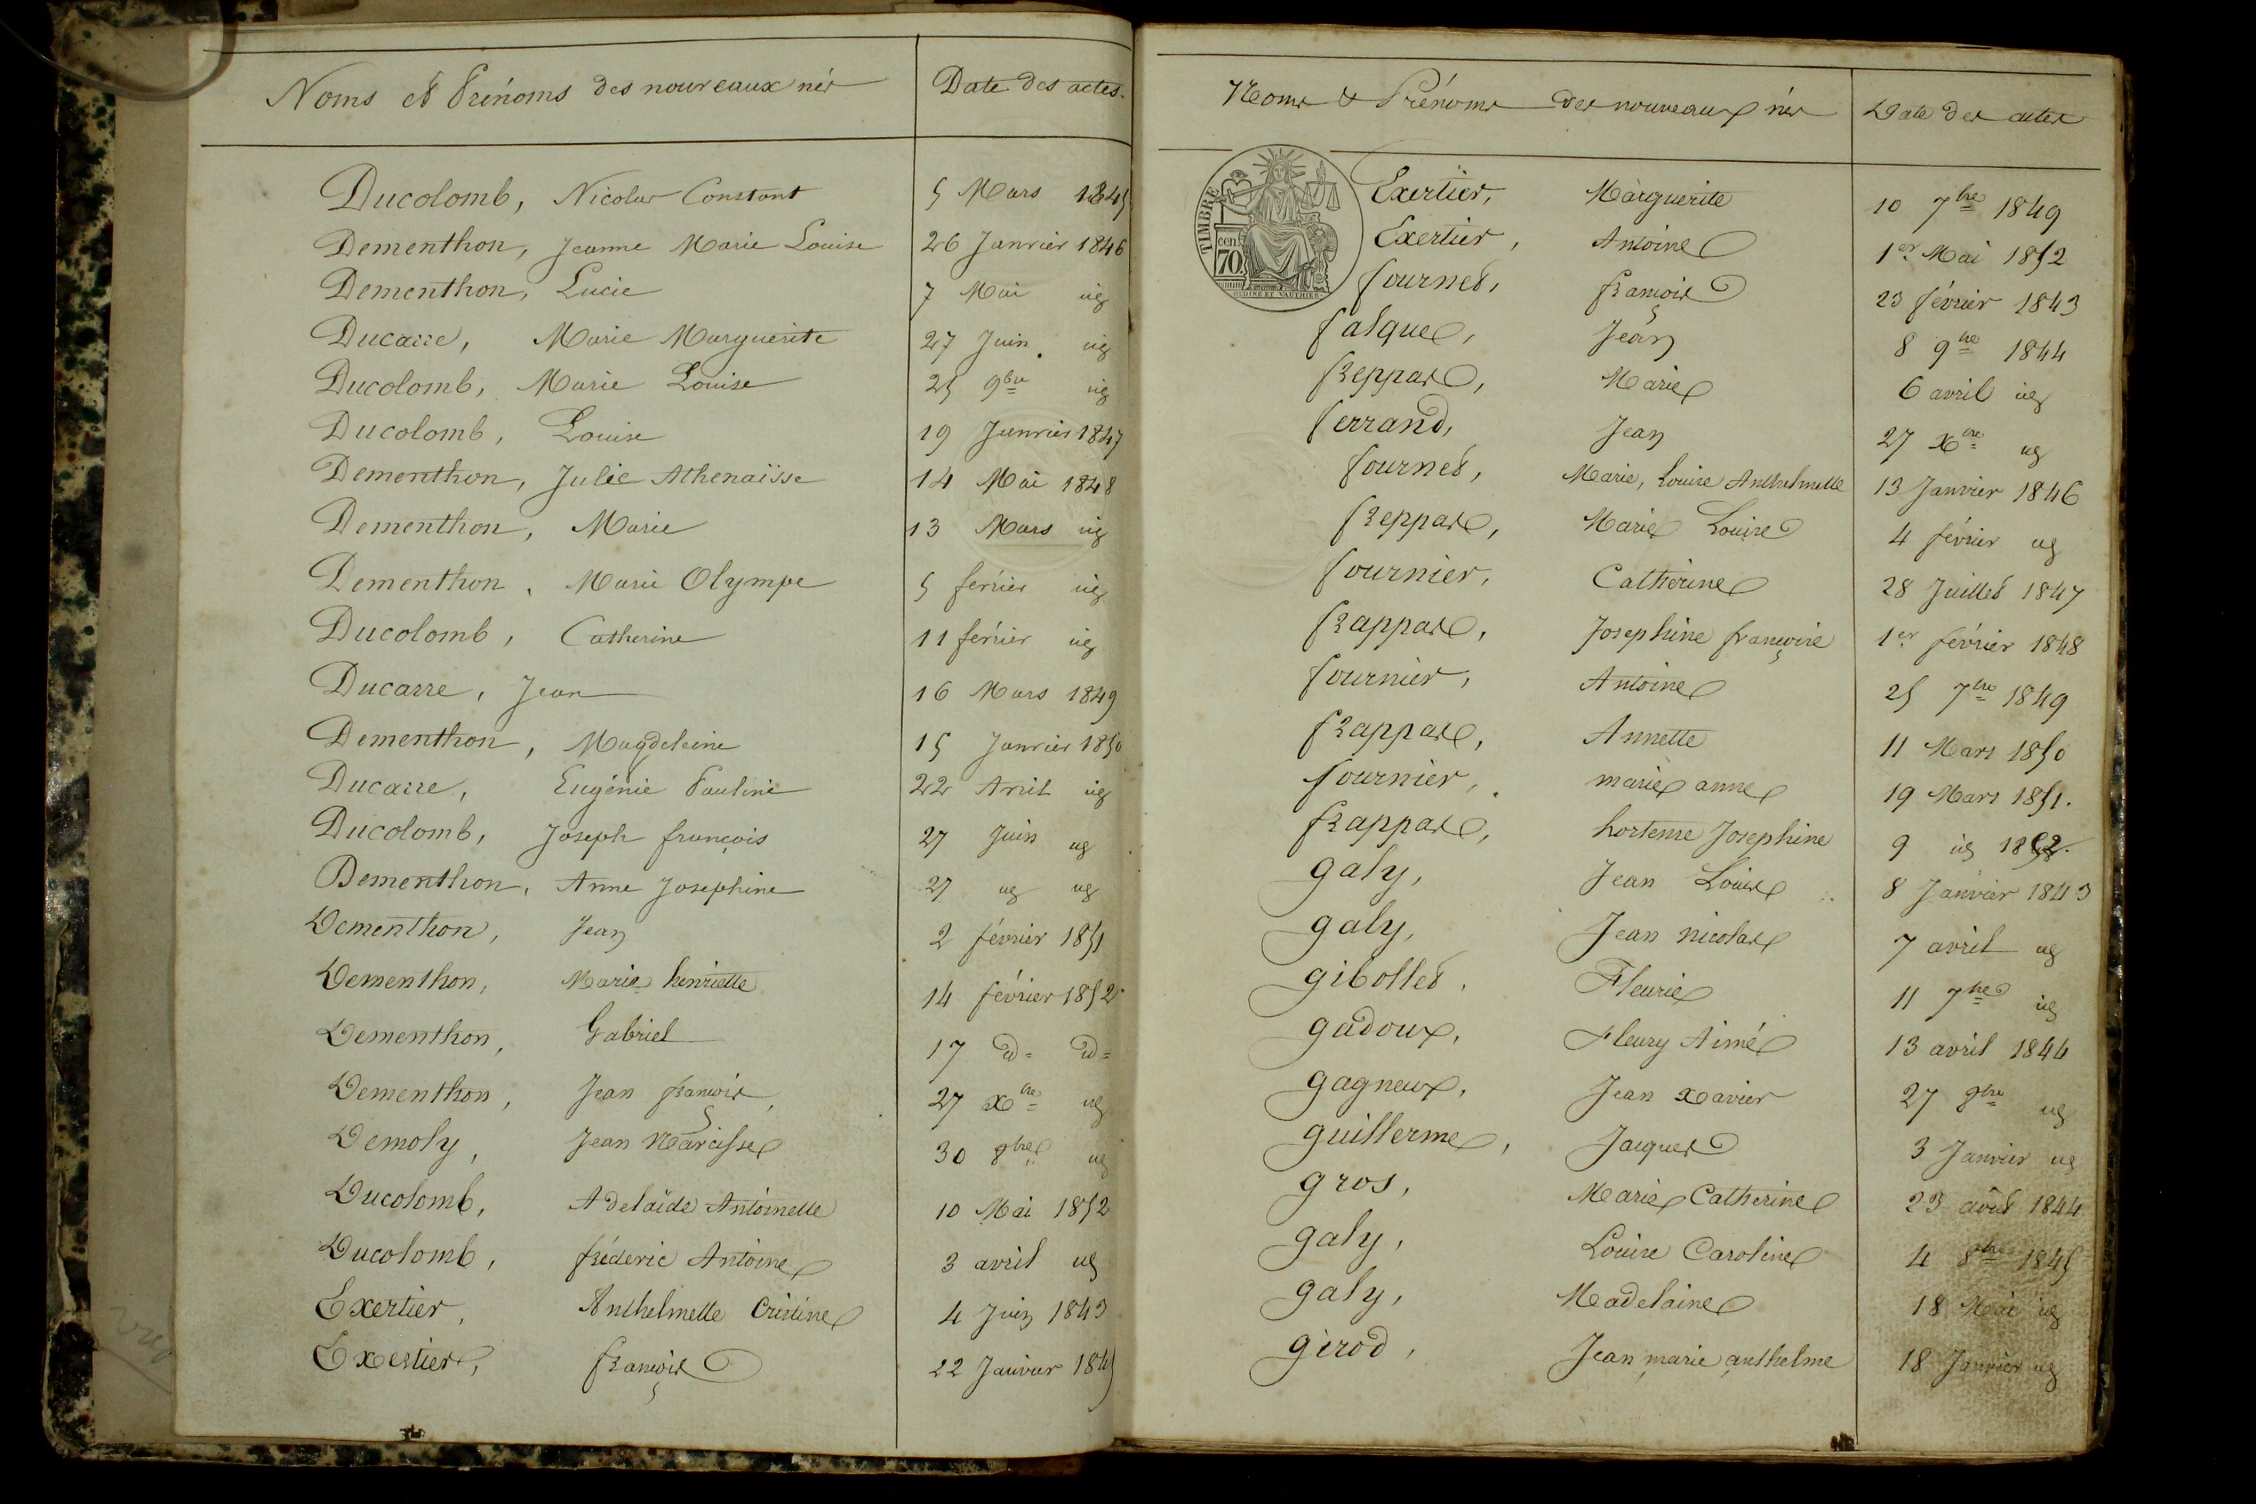 Noms et Prénoms des nouveaux nés
Date des actes.
Ducolomb, Nicolas Constant 5 Mars 1845
Dementhon, Jeanne Marie Louise 26 Janvier 1846
Dementhon, Lucie 7 Mai id
Ducarre, Marie Marguerite 27 Juin id
Ducolomb, Marie Louise 25 9bre id
Ducolomb, Louise 19 Janvier 1847
Dementhon, Julie Athenaïsse 14 Mai 1848
Dementhon, Marie 13 Mars id
Dementhon, Marie Olympe 5 ferrier id
Ducolomb, Catherine 11 ferrier id
Ducarre, Jean 16 Mars 1849
Dementhon, Magdeleine 15 Janvier 1850
Ducarre, Eugénie Pauline 22 Avril id
Ducolomb, Joseph françois 27 Juin id
Dementhon, Anne Josephine 27 id id
Dementhon, Jean 2 février 1851
Dementhon, Marie henriette 14 février 1852
Dementhon, Gabriel 17 d= d=
Dementhon, Jean françois, 27 xbre id
Demoly, Jean Narcisse 30 8bre id
Ducolomb, Adelaïde Antoinette 10 Mai 1852
Ducolomb, fréderic Antoine 3 avril id
Exertier, Anthelmette Cristine 4 Juin 1843
Exertier, françois 22 Janvier 1845
Noms & Prénoms des nouveaux nés
Date des actes
TIMBRE
cent. 70
Exertier, Marguerite 10 7bre 1849
Exertier, Antoine 1er Mai 1852
fournet, françois 23 février 1843
falque, Jean 8 9bre 1844
freppas, Marie 6 avril id
ferrand, Jean 27 xbre id
fournet, Marie, Louise Anthelmette 13 Janvier 1846
freppas, Marie Louise 4 février id
fournier, Catherine 28 Juillet 1847
frappas, Josephine françoise 1er février 1848
fournier, Antoine 25 7bre 1849
frappas, Annette 11 Mars 1850
fournier, marie anne 19 Mars 1851.
frappas, hortense Josephine 9 id 1852.
galy, Jean Louis 8 Janvier 1843
galy, Jean nicolas 7 avril id
gibollet. Fleurie 11 7bre id
gadoux, Fleury Aimé 13 avril 1844
gagneux, Jean xavier 27 9bre id
guillerme, Jacques 3 Janvier id
gros, Marie Catherine 23 août 1844
galy, Louise Caroline 4 8bre 1845
galy, Madelaine 18 Mai id
girod, Jean marie anthelme 18 Janvier id